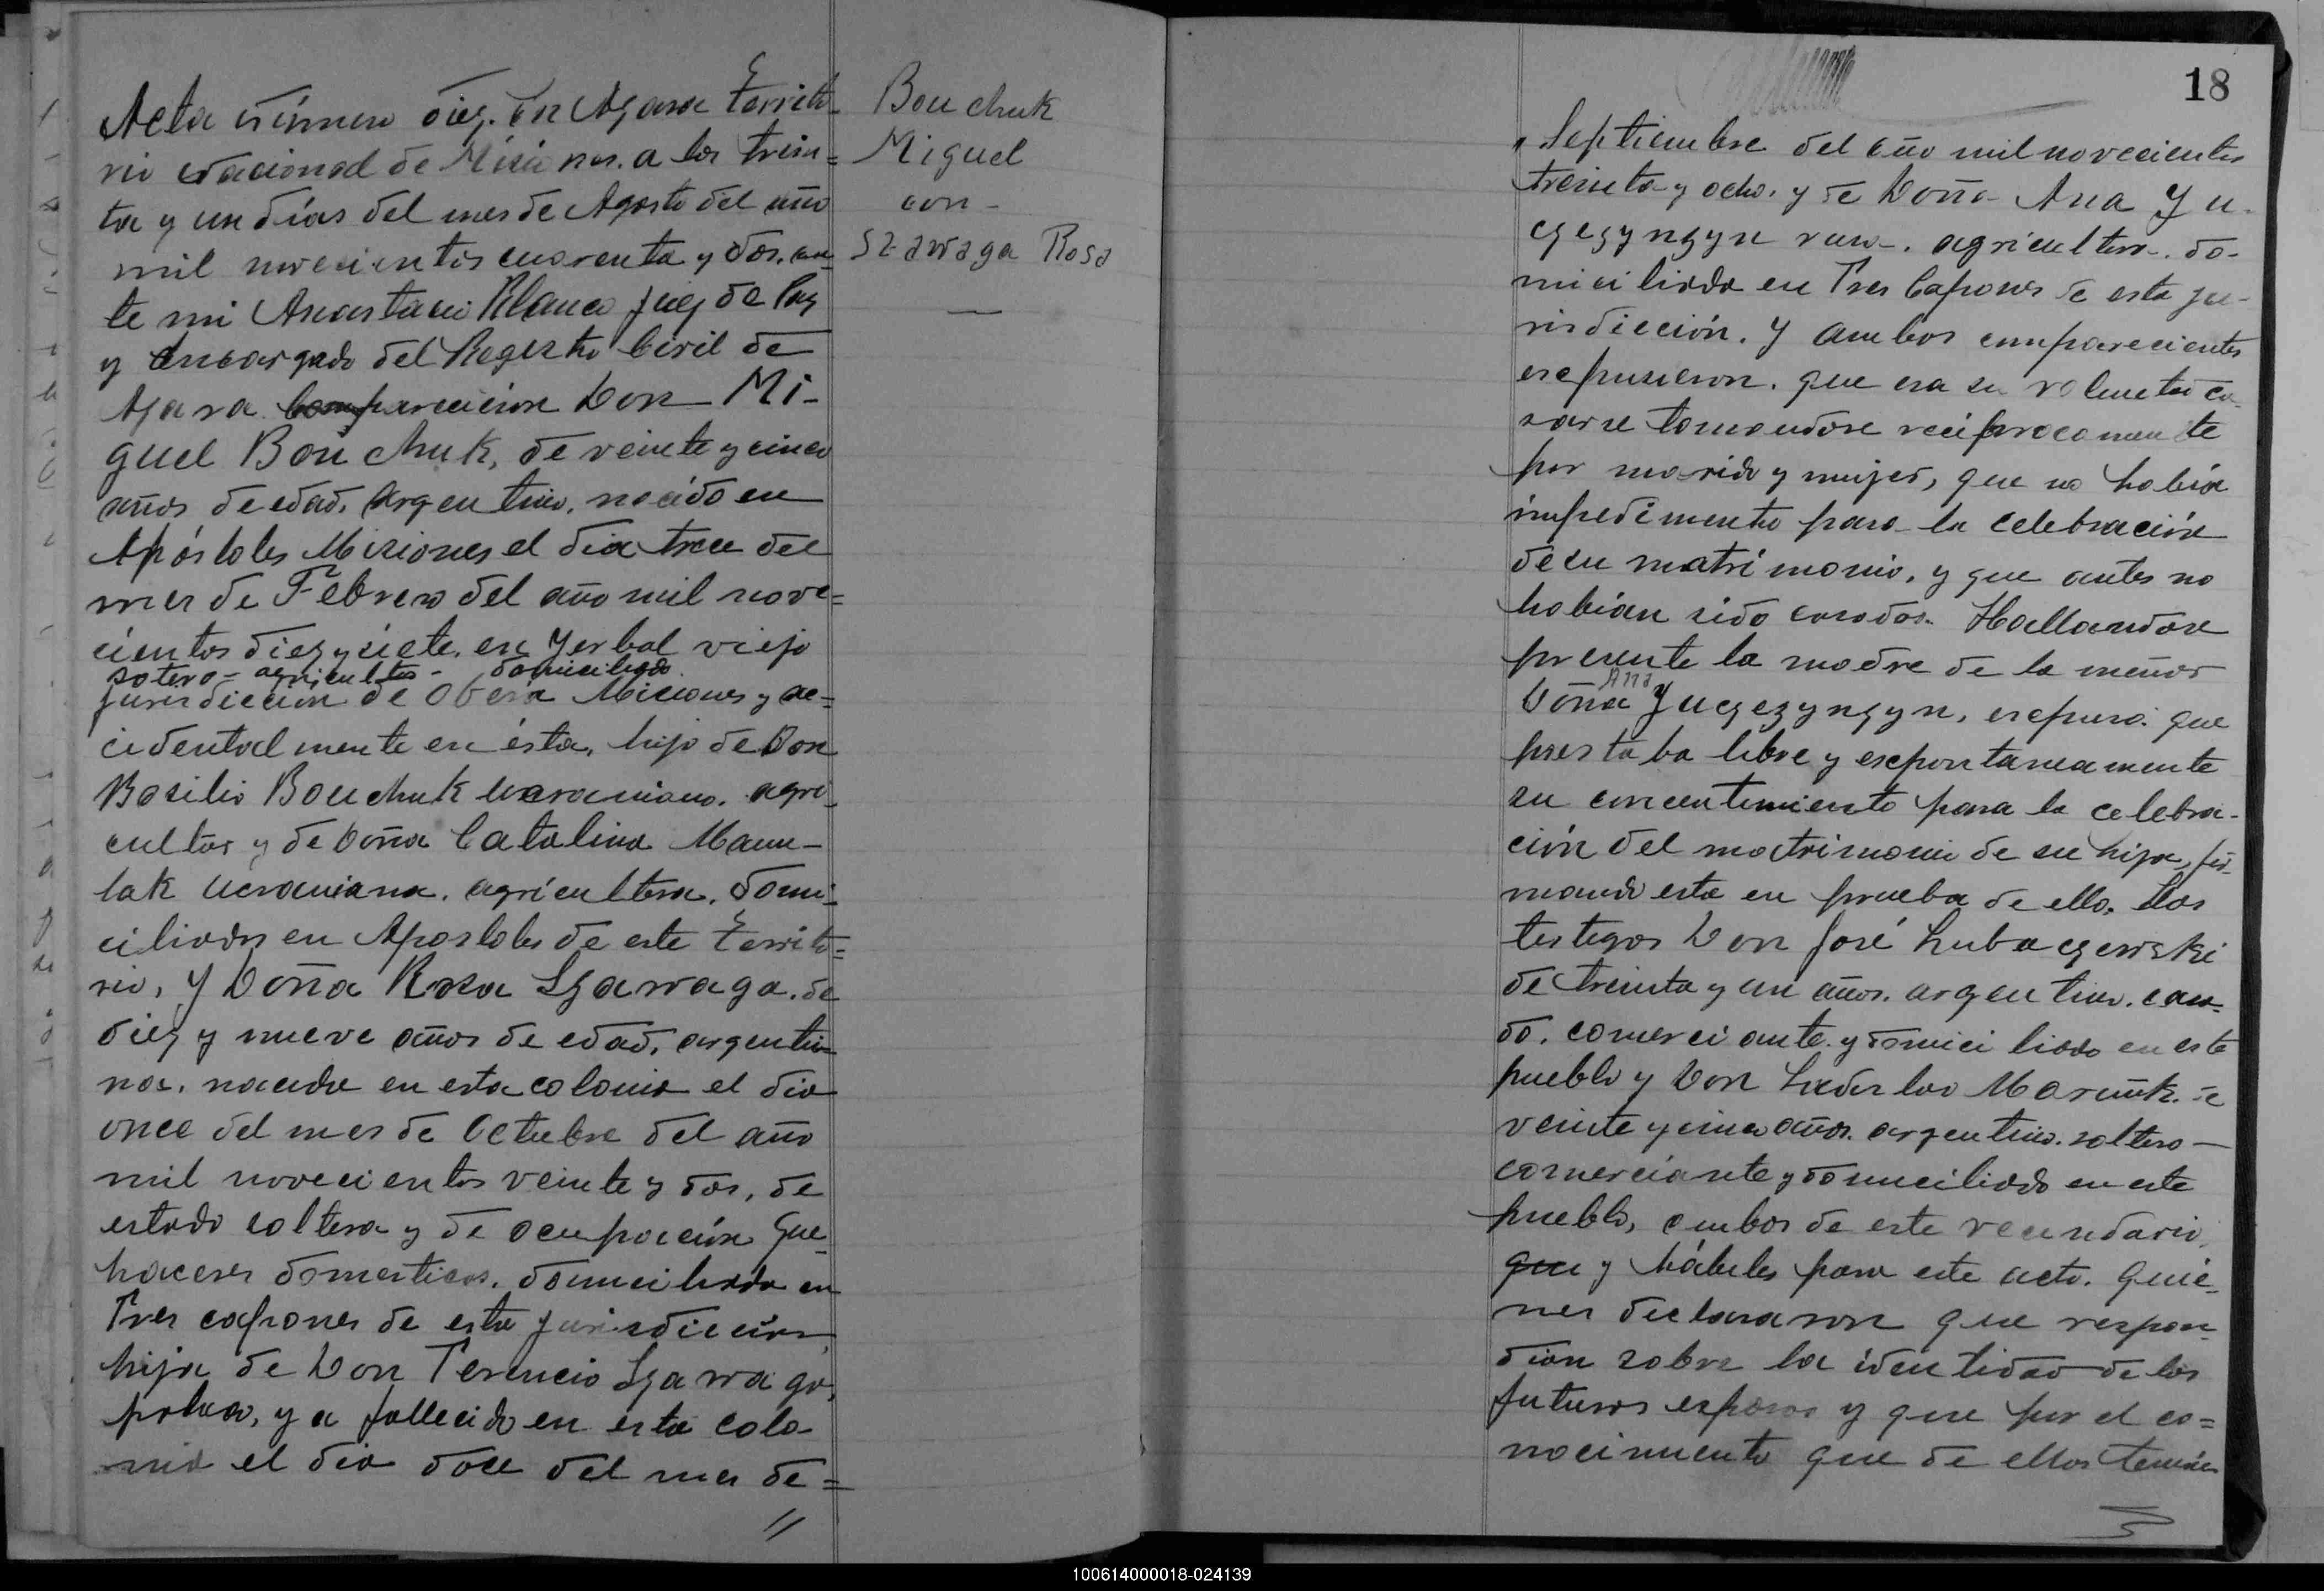 Acta número diez. En Azara Territo-
rio Nacional de Misiones. a los trein=
ta y un días del mes de Agosto del año
mil novecientos cuarenta y dos. an-
te mi Anastacio Blanco Juez de Paz
y Encargado del Registro Civil de
Azara comparecieron Don Mi-
guel Bouchuk, de veinte y cinco
años de edad, Argentino, nacido en
Apóstoles Misiones el día trece del
mes de Febrero del año mil nove=
cientos diez y siete, en Yerbal viejo
sotero - agricultor - domiciliado
jurisdiccion de Oberá Misiones y ac=
cidentalmente en ésta, hijo de Don
Basilio Bouchuk ucraniano. agri-
cultor y de Doña Catalina Manu-
lak ucraniana. agricultora, domi-
ciliados en Apostoles de este Territo=
rio, Y Doña Rosa Szawaga. de
diez y nueve años de edad, argenti-
na. nacida en esta colonia el dia
once del mes de Octubre del año
mil novecientos veinte y dos, de
estado soltera y de ocupación Que-
haceres domesticos. domiciliada en
Tres capones de esta jurisdicción,
hija de Don Terencio Szawaga,
polaco, y a fallecido en esta colo-
nia el dia doce del mes de=
//
Bouchuk
Miguel
con -
Szawaga Rosa
—
18
" Septiembre del año mil novecientos
treinta y ocho. y de Doña Ana Ju-
czezyngyn rusa. agricultora. do-
miciliada en Tres Capones de esta ju-
risdicción. Y ambos comparecientes
expusieron. que era su voluntad ca-
sarse tomandose recíprocamente
por marido y mujer, que no había
impedimento para la celebración
de su matrimonio, y que antes no
habían sido casados. Hallandose
presente la madre de la menor
Ana
Doña Juczezyngyn, expuso. que
prestaba libre y expontaneamente
su concentimiento para la celebra-
ción del matrimonio de su hija, fir-
mando esta en prueba de ello. Los
testigos Don José Lubaczewski
de treinta y un años. argentino. casa-
do. comerciante. y domiciliado en este
pueblo y Don Ladislao de
veinte y cinco años. argentino. soltero -
comerciante y domiciliado en este
pueblo, ambos de este vecindario.
que y hábiles para este acto. Quie-
nes declararon que respon-
dían sobre la identidad de los
futuros esposos y que por el co=
nocimiento que de ellos tenían
100614000018-024139